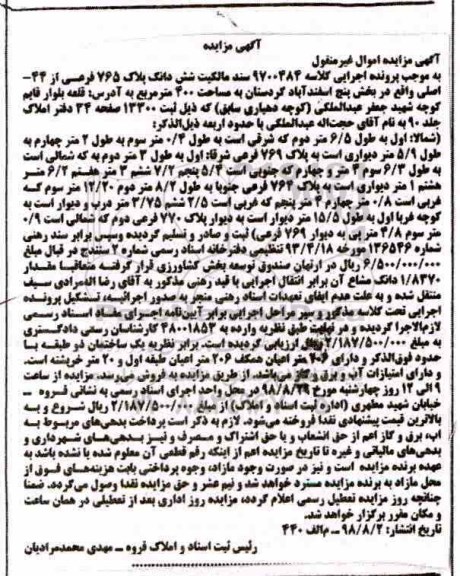 آگهی مزایده
آگهی مزایده اموال غیرمنقول
به موجب پرونده اجرایی کلاسه ۹۷۰۰۴۸۴ سند مالکیت شش دانگ پلاک ۷۶۵ فرعی از ۴۴-
اصلی واقع در بخش پنج اسفندآباد کردستان به مساحت ۴۰۰ مترمربع به آدرس: قلعه بلوار قایم
کوچه شهید جعفر عبدالملکی (کوچه دهیاری سابق) که ذیل ثبت ۱۳۳۰۰ صفحه ۳۴ دفتر املاک
جلد ۹۰ به نام آقای حجت‌اله عبدالملکی با حدود اربعه ذیل‌الذکر:
(شمالا: اول به طول ۶/۵ متر دوم که شرقی است به طول ۰/۳ متر سوم به طول ۲ متر چهارم به
طول ۵/۹ متر دیواری است به پلاک ۷۶۹ فرعی شرقا: اول به طول ۳ متر دوم به که شمالی است
به طول ۶/۳ سوم ۴ متر و چهارم که جنوبی است ۵/۴ پنجم ۷/۲ ششم ۳ متر هفتم ۶/۲ متر
هشتم ۱ متر دیواری است به پلاک ۷۶۴ فرعی جنوبا به طول ۸/۲ متر دوم ۱۲/۲۰ متر سوم که
غربی است ۰/۸ متر چهارم ۴ متر پنجم که غربی است ۲/۵ ششم ۳/۷۵ متر درب و دیوار است به
کوچه غربا اول به طول ۱۵/۵ متر دیوار است به دیوار پلاک ۷۷۰ فرعی دوم که شمالی است ۰/۹
سوم ۴/۸ متر به دیوار ۷۶۹ فرعی) ثبت و صادر و تسلیم گردیده وسپس برابر سند رهنی
شماره ۱۳۶۵۴۶ مورخه ۹۳/۴/۱۸ تنظیمی دفترخانه اسناد رسمی شماره ۲ سنندج در قبال مبلغ
۶/۵۰۰/۰۰۰/۰۰۰ ریال در ارتهان صندوق توسعه بخش کشاورزی قرار گرفته متعاقبا مقدار
۱/۸۳۷۰ دانگ مشاع آن برابر انتقال اجرایی با قید رهنی مذکور به آقای رضا اله‌مرادی سیف
منتقل شده و به علت عدم ایفای تعهدات اسناد رهنی منجر به صدور اجرائیه، تشکیل پرونده
اجرایی تحت کلاسه مذکور و سیر مراحل اجرایی برابر آیین‌نامه اجرای مفاد اسناد رسمی
لازم‌الاجرا گردیده و در نهایت طبق نظریه وارده به ۴۸۰۰۱۸۵۳ کارشناسان رسمی دادگستری
به مبلغ ۲/۱۸۷/۵۰۰/۰۰۰ ریال ارزیابی گردیده است. برابر نظریه یک ساختمان دو طبقه با
حدود فوق‌الذکر و دارای ۲۰۶ متر اعیان همکف ۲۰۶ متر اعیان طبقه اول و ۲۰ متر خرپشته است.
و دارای امتیازات آب و برق و گاز می‌باشد. از طریق مزایده به فروش می‌رسد. مزایده از ساعت
۹ الی ۱۲ روز چهارشنبه مورخ ۹۸/۸/۲۹ در محل واحد اجرای اسناد رسمی به نشانی قروه –
خیابان شهید مطهری (اداره ثبت اسناد و املاک) از مبلغ ۲/۱۸۷/۵۰۰/۰۰۰ ریال شروع و به
بالاترین قیمت پیشنهادی نقدا فروخته می‌شود. لازم به ذکر است پرداخت بدهی‌های مربوط به
آب، برق و گاز اعم از حق انشعاب و یا حق اشتراک و مصرف و نیز بدهی‌های شهرداری و
بدهی‌های مالیاتی و غیره تا تاریخ مزایده اعم از اینکه رقم قطعی آن معلوم شده یا نشده باشد به
عهده برنده مزایده است و نیز در صورت وجود مازاد، وجوه پرداختی بابت هزینه‌های فوق از
محل مازاد به برنده مزایده مسترد خواهد شد و نیم عشر و حق مزایده نقدا وصول می‌گردد. ضمنا
چنانچه روز مزایده تعطیل رسمی اعلام گردد، مزایده روز اداری بعد از تعطیلی در همان ساعت
و مکان مقرر برگزار خواهد شد.
تاریخ انتشار: ۹۸/۸/۲ – م‌الف ۴۴۰
رئیس ثبت اسناد و املاک قروه – مهدی محمدمرادیان